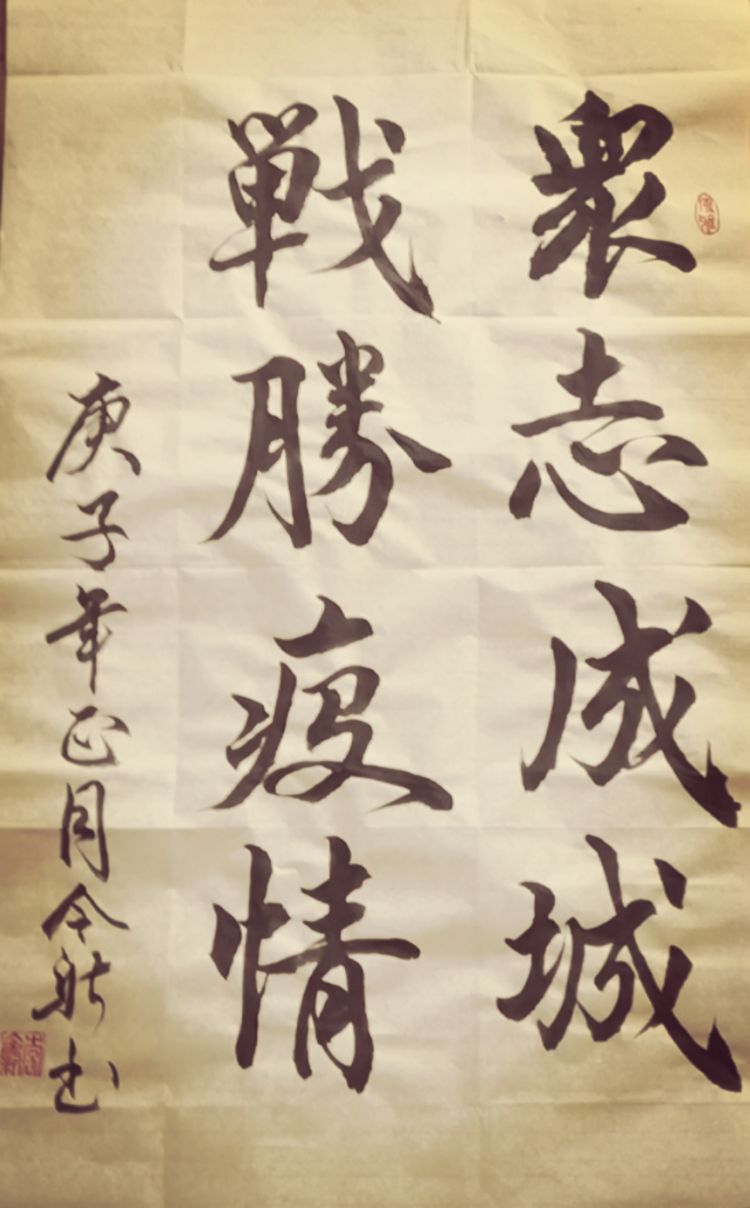 眾志成城
戰勝疫情
庚子年正月令
书